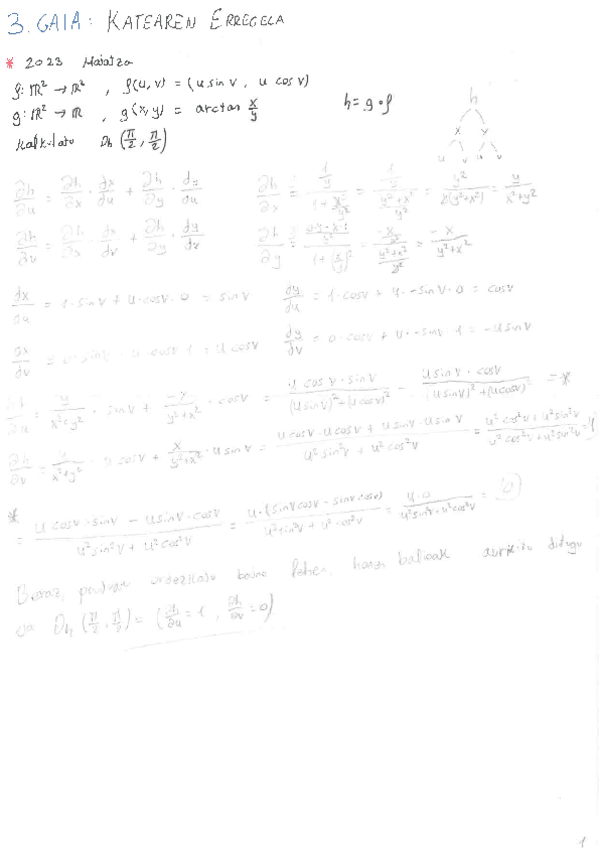 3. GAIA: KATEAREN ERREGELA
* 2023 Maiatza
f: ℝ² → ℝ², f(u,v) = (u sin v, u cos v)
g: ℝ² → ℝ, g(x,y) = arctan x/y
h = g∘f
Kalkulatu Dh (π/2, π/2)
h
x y
u v u v
∂h/∂u = ∂h/∂x · dx/du + ∂h/∂y · dy/du
∂h/∂x = = = = y/(x²+y²)
∂h/∂v = ∂h/∂x · dx/dv + ∂h/∂y · dy/dv
∂h/∂y = = = -x/(y²+x²)
dx/du = 1·sin v + u·cos v · 0 = sin v
dy/du = 1·cos v + u·-sin v · 0 = cos v
∂x/∂v = u cos v
dy/dv = 0·cos v + u·-sin v · 1 = -u sin v
∂h/∂u = y/(x²+y²) · sin v + -x/(y²+x²) · cos v = u cos v · sin v/((u sin v)² + (u cos v)²) - u sin v · cos v/((u sin v)² + (u cos v)²) = *
∂h/∂v = y/(x²+y²) · u cos v + x/(y²+x²) · u sin v = (u cos v · u cos v + u sin v · u sin v)/(u² sin² v + u² cos² v) = (u² cos² v + u² sin² v)/(u² cos² v + u² sin² v) = 1
* = (u cos v · sin v - u sin v · cos v)/(u² sin² v + u² cos² v) = u·(sin v cos v - sin v cos v)/(u² sin² v + u² cos² v) = u·0/(u² sin² v + u² cos² v) = 0
Beraz, puntuan ordezkatu baino lehen, balioak ditugu
Dh (π/2, π/2) = (∂h/∂u = 1, ∂h/∂v = 0)
1